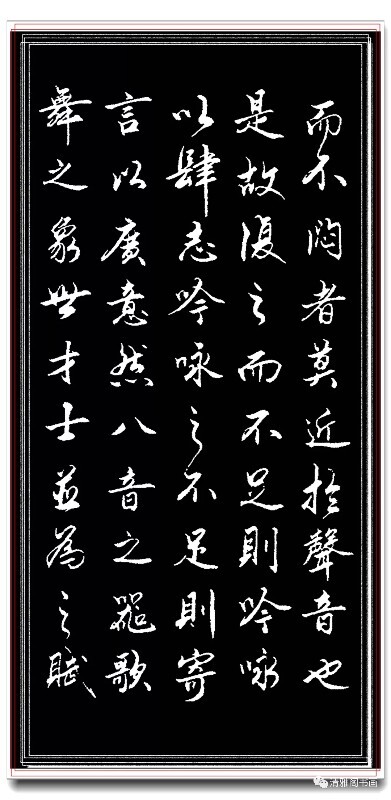 而不悶者莫近於聲音也
是故復之而不足則吟咏
以肆志吟咏之不足則寄
言以廣意然八音之器歌
舞之象世才士並為之賦
清雅阁书画